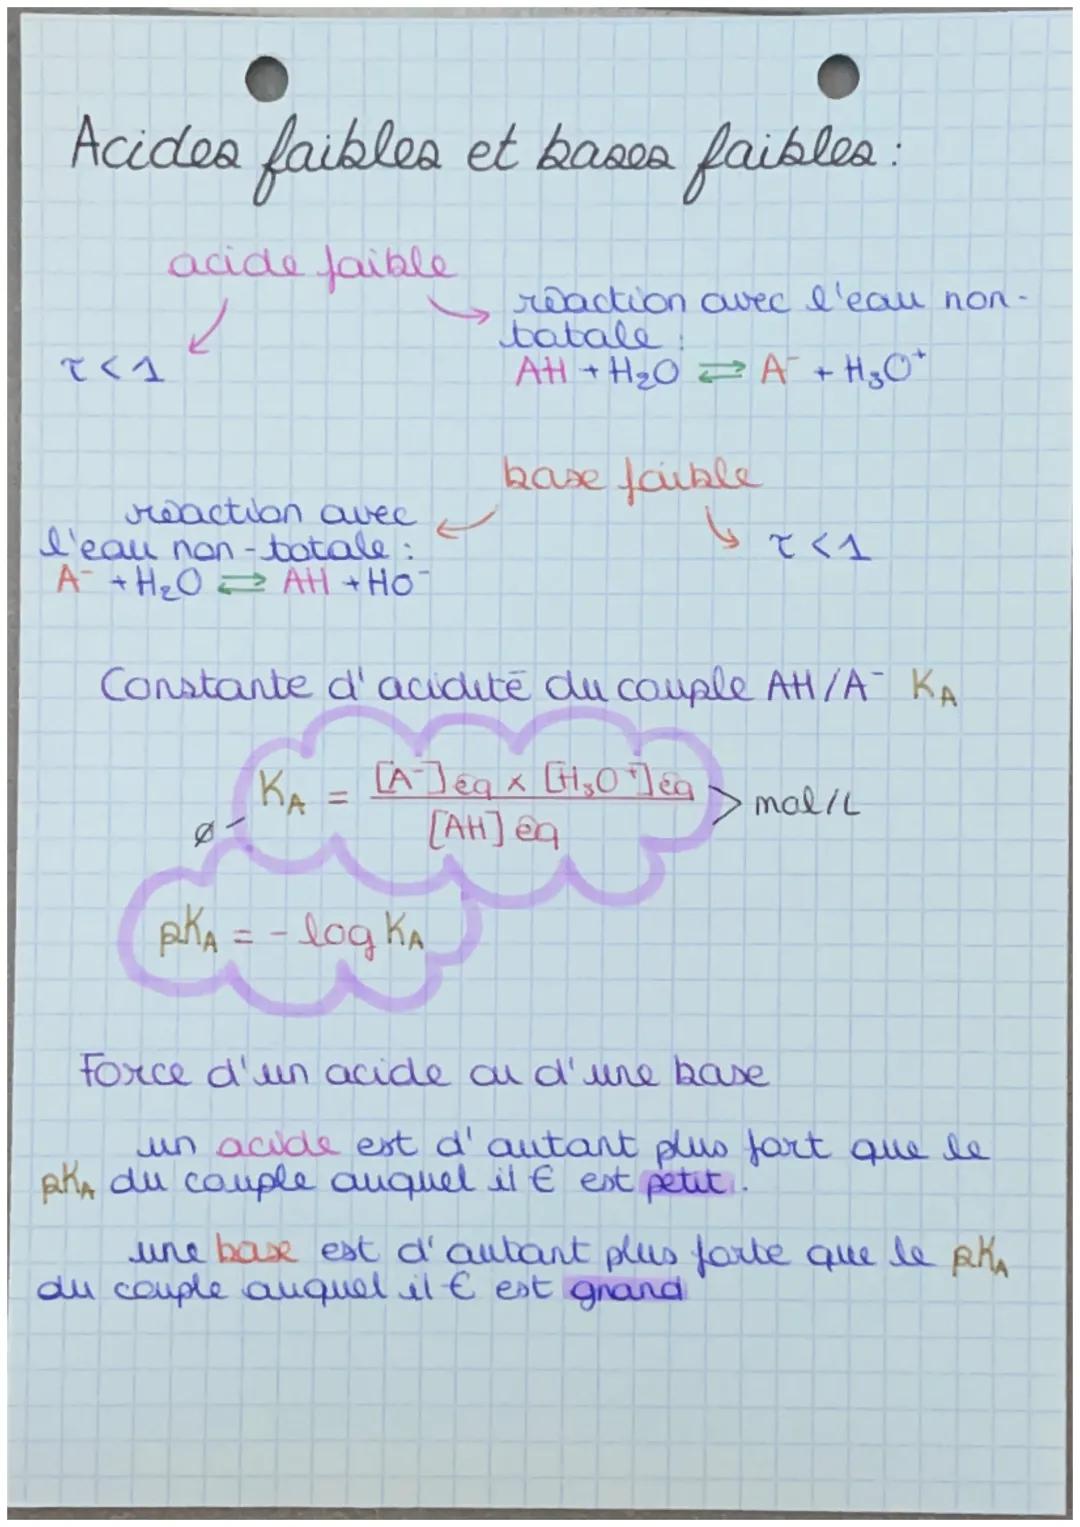 Acides faibles et bases faibles :
acide faible
réaction avec l'eau non-
totale :
τ < 1
AH + H₂O ⇄ A⁻ + H₃O⁺
base faible
réaction avec
l'eau non-totale :
τ < 1
A⁻ + H₂O ⇄ AH + HO⁻
Constante d'acidité du couple AH/A⁻ KA
KA = [A⁻]éq × [H₃O⁺]éq / [AH]éq > mol/L
ø
pKA = - log KA
Force d'un acide ou d'une base
un acide est d'autant plus fort que le
pKA du couple auquel il € est petit.
une base est d'autant plus forte que le pKA
du couple auquel il € est grand